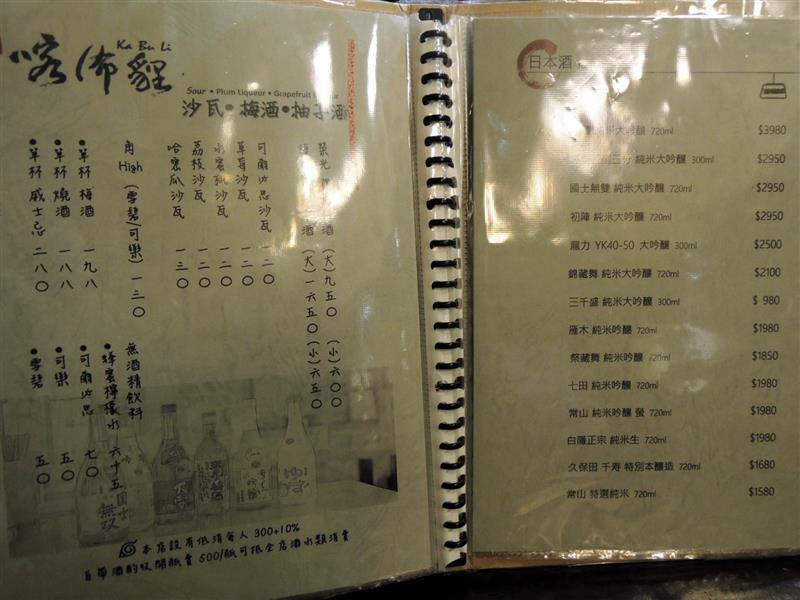 喀佈貍
Ka Bu Li
Sour • Plum Liqueur • Grapefruit
沙瓦•梅酒•柚子酒
榮光 酒 (大)九五〇 (小)六〇〇
梅 酒 (大)一六五〇 (小)六五〇
可爾必思沙瓦 一二〇
草莓沙瓦 一二〇
水蜜桃沙瓦 一二〇
荔枝沙瓦 一二〇
哈蜜瓜沙瓦 一三〇
角High (雪碧/可樂) 一三〇
•單杯 梅酒 一九八
•單杯 燒酒 一八八
•單杯 威士忌 二八〇
無酒精飲料
•蜂蜜檸檬水 六十五
•可爾必思 七〇
•可樂 五〇
•雪碧 五〇
本店設有低消每人 300+10%
自帶酒酌收開瓶費 500/瓶可抵全店酒水類消費
日本酒
純米大吟釀 720ml $3980
三分 純米大吟釀 300ml $2950
國士無雙 純米大吟釀 720ml $2950
初陣 純米大吟釀 720ml $2950
龍力 YK40-50 大吟釀 300ml $2500
錦藏舞 純米大吟釀 720ml $2100
三千盛 純米大吟釀 300ml $ 980
雁木 純米吟釀 720ml $1980
祭藏舞 純米吟釀 720ml $1850
七田 純米吟釀 720ml $1980
常山 純米吟釀 螢 720ml $1980
白隱正宗 純米生 720ml $1980
久保田 千寿 特別本釀造 720ml $1680
常山 特選純米 720ml $1580